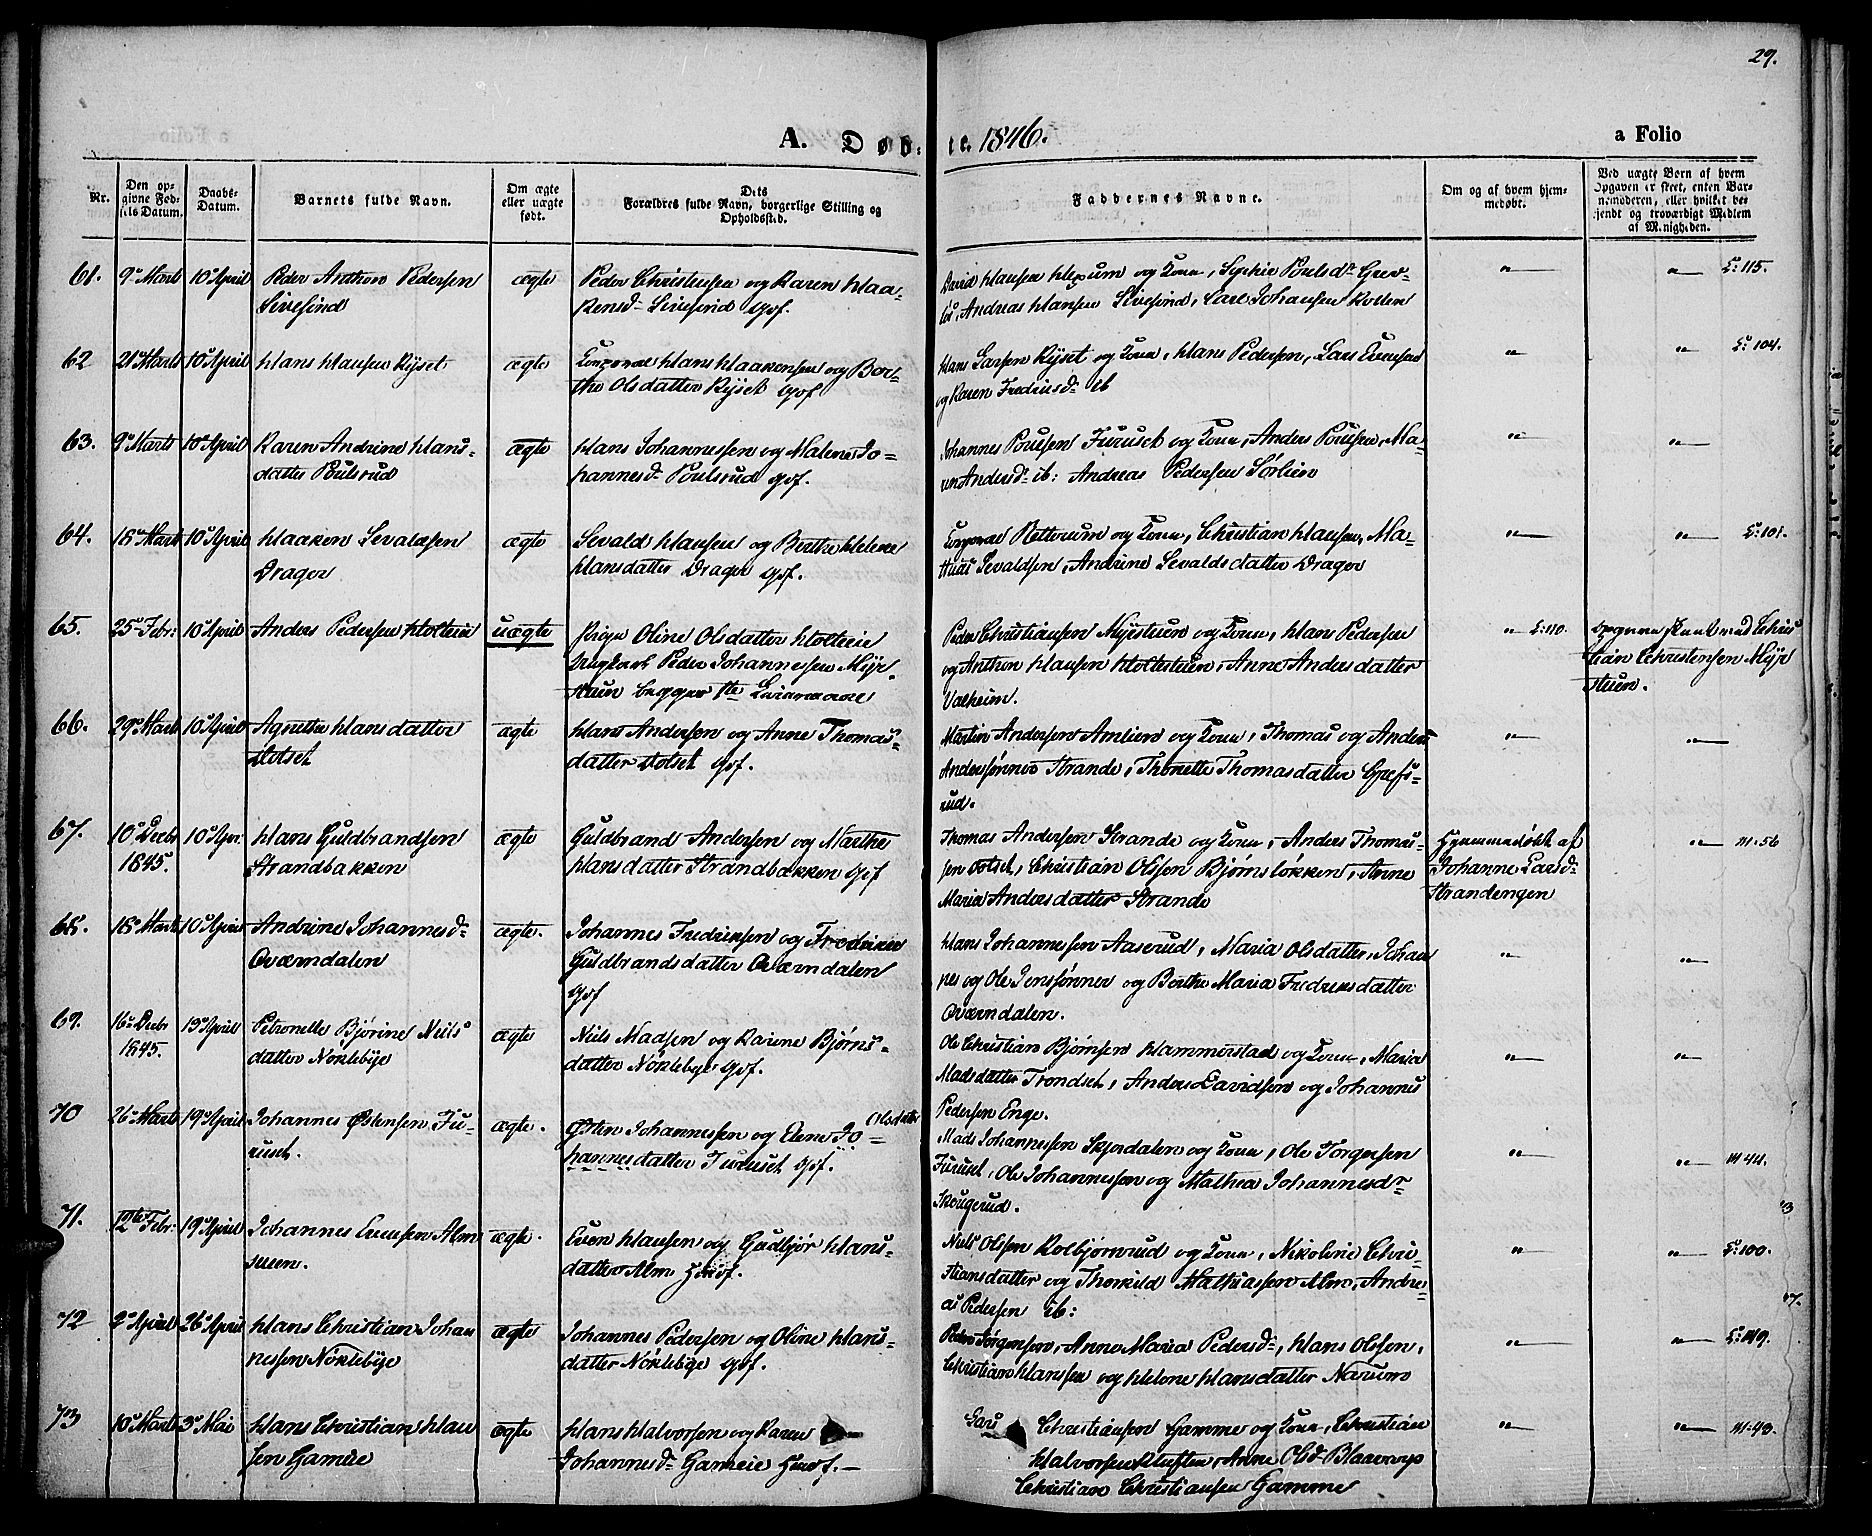 29.
A. Døbte. 1846.
a Folio
Nr.
Den op-
givne Fød-
sels Datum.
Daabs-
Datum.
Barnets fulde Navn.
Om ægte
eller uægte
født.
Dets
Forældres fulde Navn, borgerlige Stilling og
Opholdssted.
Faddernes Navne.
Om og af hvem hjem-
medøbt.
Ved uægte Børn af hvem
Opgaven er skeet, enten Bar-
nemoderen, eller hvilket be-
kjendt og troværdigt Medlem
af Menigheden.
61. 9de Marts 10de April Peder Anthon Pedersen
Sivesind
ægte
Peder Christensen og Karen Haa-
kensd. Sivesind Gdf.
David Hansen Hexum og Kone, Sophie Poulsdr
Andreas Hansen Sivesind, Carl Johansen
" " L: 115.
62 21de Marts 10de April Hans Hansen Ryset
ægte
Hans Haakensen og Ber-
the Olsdatter Ryset Gdf
Hans Larsen Ryset og Kone, Hans Pedersen, Lars Evensen
og Karen Fredriksdr ib
" " L: 104.
63. 9de Marts 10de April Karen Andrine Hans-
datter Poulsrud
ægte
Hans Johannessen og Malene Jo-
hannesdr Poulsrud Gdf.
Johannes Poulsen Furuset og Kone, Anders Poulsen, Ma-
ren Andersdr ib: Andreas Pedersen Sørlien
" "
64. 18de Marts 10de April Haaken Sevaldsen
Drager
ægte
Sevald Hansen og Berthe Helene
Hansdatter Drager Gdf.
og Kone, Christian Hansen, Ma-
thias Sevaldsen, Andrine Sevaldsdatter Drager
" " L: 101.
65. 25de Febr: 10de April Anders Pedersen Holteie
uægte
Pigen Oline Olsdatter Holteie
Ungkarl Peder Johannessen Myr-
stuen begges 1ste Leiermaal
Peder Christiansen Myrstuen og Kone, Hans Pedersen
og Anthon Hansen Holtestuen, Anne Andersdatter
Valheim.
" L: 110.
Opgaven skeet ved Chris
tian Christensen Myr
stuen.
66. 29de Marts 10de April Agnethe Hansdatter
Dotset
ægte
Hans Andersen og Anne Thomas-
datter Dotset Gdf.
Martin Andersen Amlien og Kone, Thomas og Anders
Anderssønner Strande, Thonette Thomasdatter Grefs-
rud.
" "
67. 10de Decbr
1845.
10de Apr: Hans Guldbrandsen
Strandbakken
ægte
Guldbrand Andersen og Marthe
Hansdatter Strandbakken Gdf
Thomas Andersen Strande og Kone, Anders Thomas-
sen Dotset, Christian Olssen Bjørnsløkken, Anne
Maria Andersdatter Strande
Hjemmedøbt af
Johanne Larsdr
Strandengen
" M: 56
68. 18de Marts 10de April Andrine Johannesdr
Qværndalen
ægte.
Johannes Fredriksen og Fredrikke
Guldbrandsdatter Qværndalen
Gdf
Hans Johannessen Aaserud, Maria Olsdatter, Johan
nes og Ole Jenssønner og Berthe Maria Fredriksdatter
Qværndalen.
" "
69. 16de Decbr
1845.
19de April Petronelle Bjørine Niels
datter Nøklebye
ægte
Niels Madsen og Karine Bjørns-
datter Nøklebye Gdf.
Ole Christian Bjørnsen Hammerstad og Kone, Maria
Madsdatter Trondset, Anders Davidsen og Johannes
Pedersen Enge.
" "
70 26de Marts 19de April Johannes Østensen Fu-
ruset.
ægte.
Østen Johannessen og Elene Jo-
(Olsdatter
hannesdatter Furuset Gdf.
Mads Johannessen Skjørdalen og Kone, Ole Jørgensen
Furuset, Ole Johannessen og Mathea Johannesdr
Skougerud.
" " M 44.
71. 12te Febr: 19de April Johannes Evensen Alm
stuen.
ægte.
Even Hansen og Gudbjør Hans-
datter Alm Huusf.
Niels Olssen Kolbjørnrud og Kone, Nikoline Chri-
stiansdatter og Thorkild Mathiassen Alm, Andre-
as Pedersen ib:
" " L: 100.
72 2de April 26de April Hans Christian Johan
nessen Nøklebye
ægte
Johannes Pedersen og Oline Hans-
datter Nøklebye Gdf.
Peder Jørgensen, Anne Maria Pedersdr, Hans Olssen,
Christian Hanssen og Helene Hansdatter Narum
" " L: 119.
73 10de Marts 3de Mai Hans Christian Han
sen Gamme
ægte
Hans Halvorsen og Karen
Johannesdr Gameie Huusf.
Lars Christiansen Gamme og Kone, Christian
Halvorsen Kluften, Anne Olsdr Blaaverp
Christian Christiansen Gamme
" " M: 43.